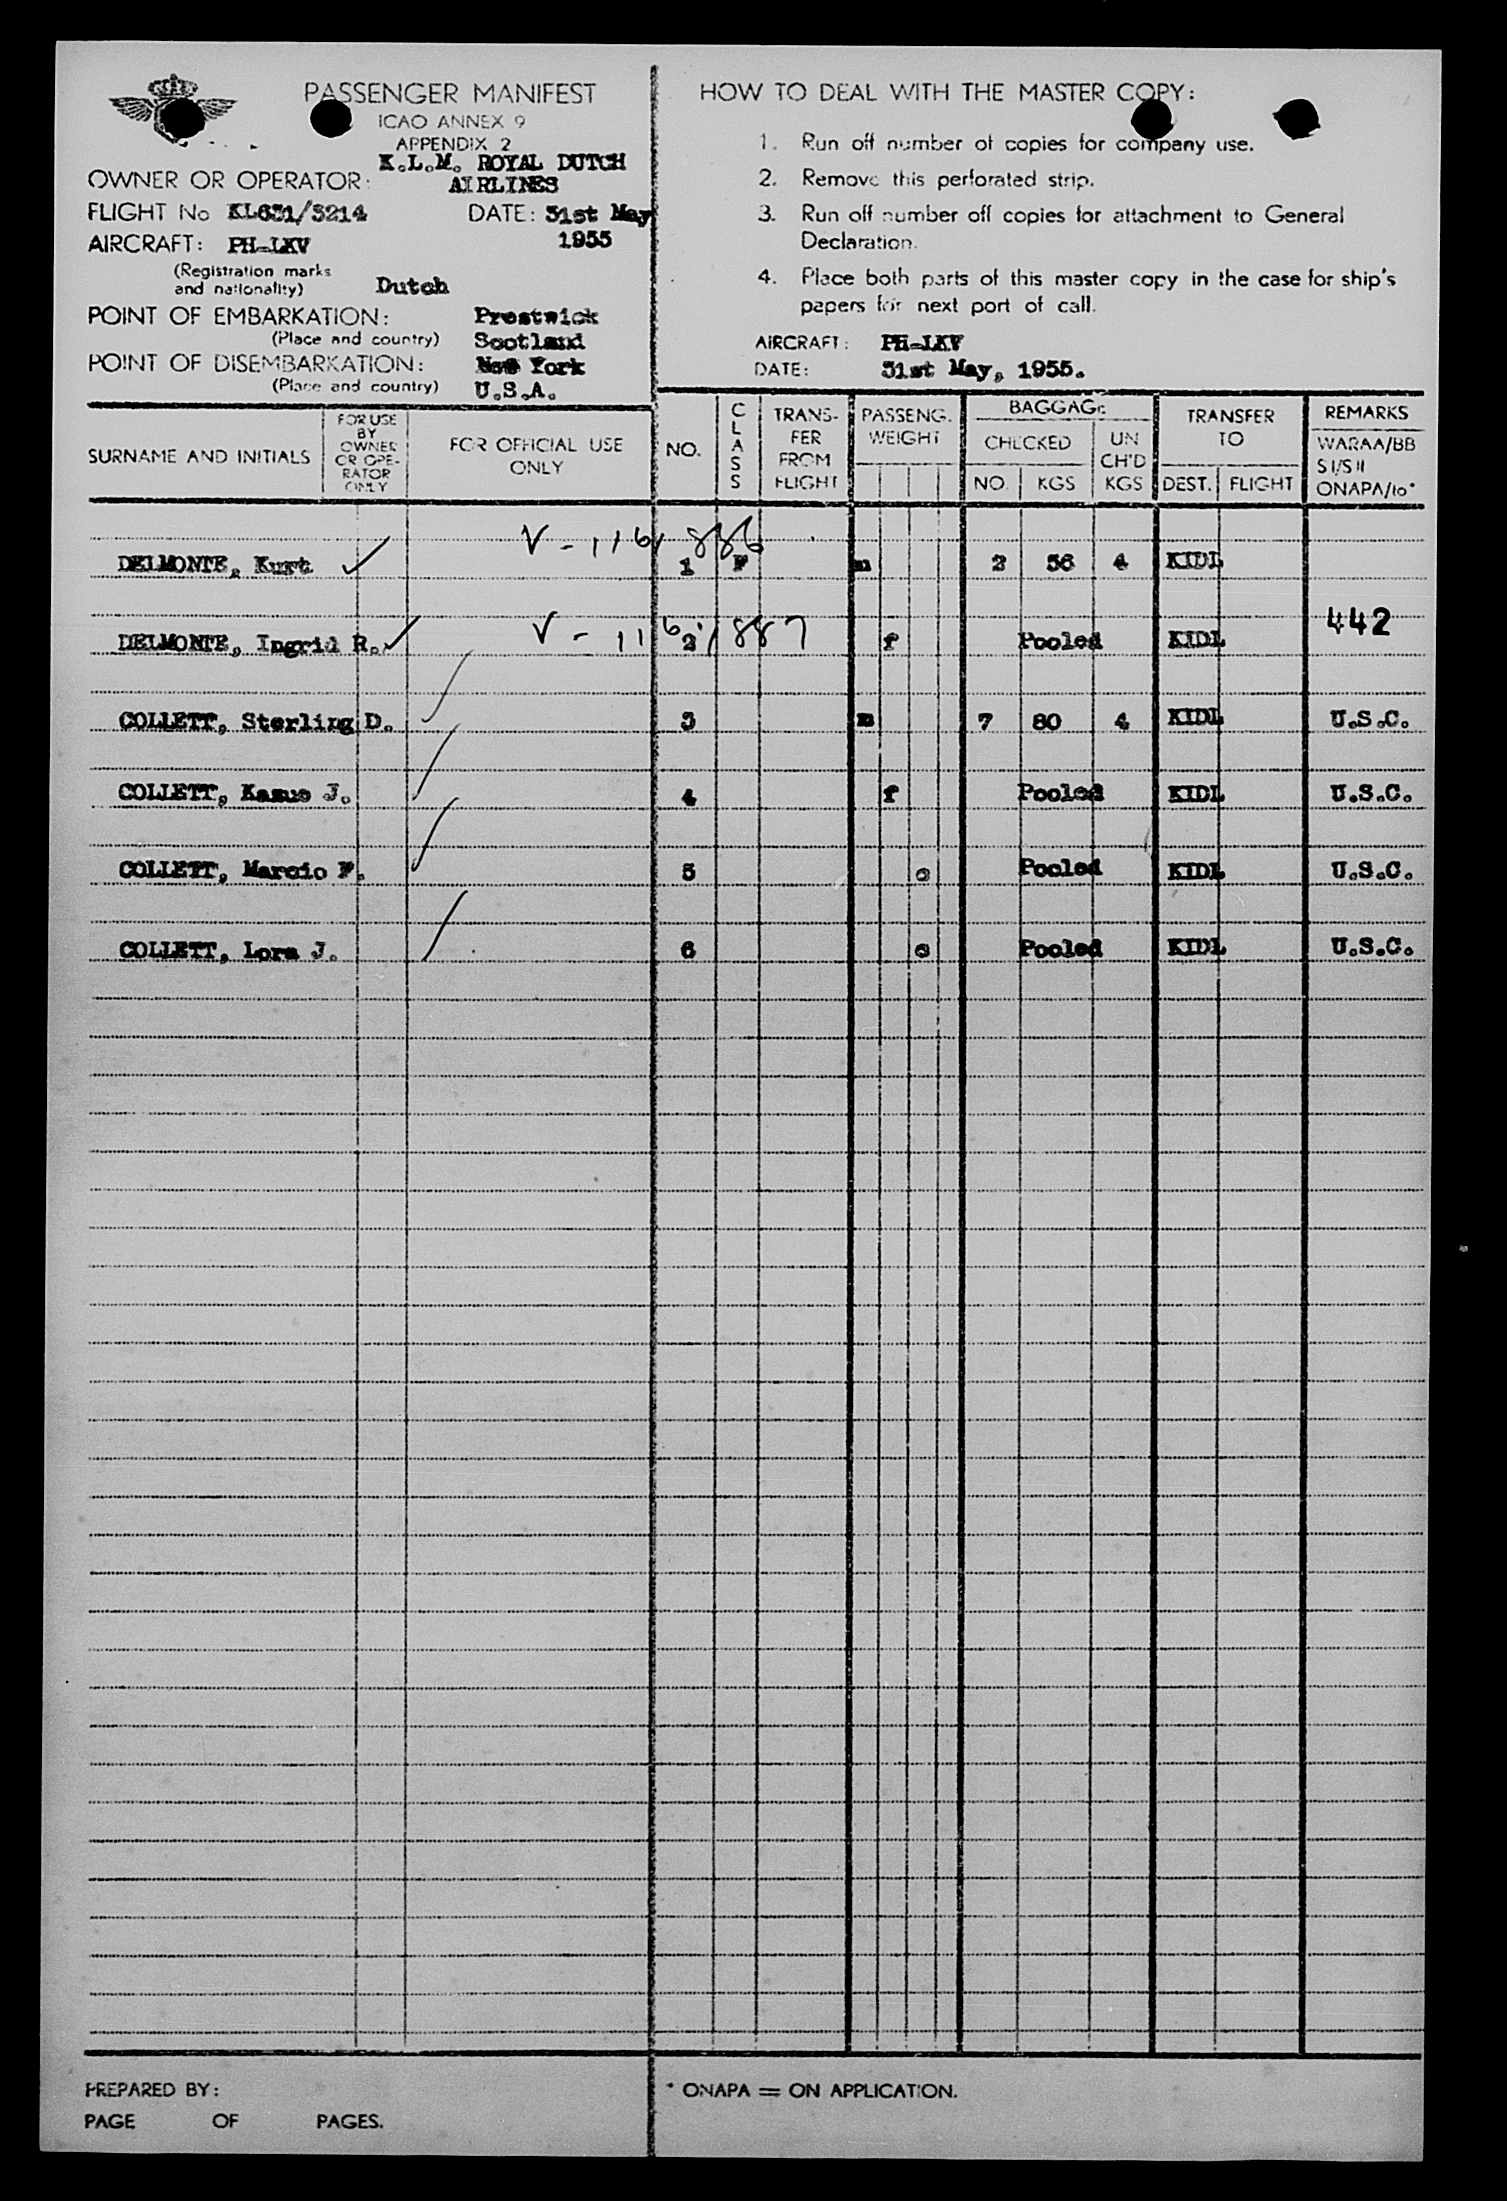 PASSENGER MANIFEST
ICAO ANNEX 9
APPENDIX 2
OWNER OR OPERATOR: K.L.M. ROYAL DUTCH
AIRLINES
FLIGHT No KL631/3214 DATE: 31st May
1955
AIRCRAFT: PH-LKV
(Registration marks
and nationality) Dutch
POINT OF EMBARKATION: Prestwick
(Place and country) Scotland
POINT OF DISEMBARKATION: New York
(Place and country) U.S.A.
HOW TO DEAL WITH THE MASTER COPY:
1. Run off number of copies for company use.
2. Remove this perforated strip.
3. Run off number off copies for attachment to General
Declaration.
4. Place both parts of this master copy in the case for ship's
papers for next port of call.
AIRCRAFT: PH-LKV
DATE: 31st May, 1955.
SURNAME AND INITIALS
FOR USE
BY
OWNER
OR OPE-
RATOR
ONLY
FOR OFFICIAL USE
ONLY
NO.
C
L
A
S
S
TRANS-
FER
FROM
FLIGHT
PASSENG.
WEIGHT
BAGGAGE
CHECKED
NO. KGS
UN
CH'D
KGS
TRANSFER
TO
DEST. FLIGHT
REMARKS
WARAA/BB
S I/S II
ONAPA/to*
V - 1161886
DELMONTE, Kurt ✓ 1 F m 2 56 4 KIDL
442
V - 1161887
DELMONTE, Ingrid R. ✓ 2 f Pooled KIDL
COLLETT, Sterling D. ✓ 3 m 7 80 4 KIDL U.S.C.
COLLETT, Kazue J. ✓ 4 f Pooled KIDL U.S.C.
COLLETT, Marcio F. ✓ 5 c Pooled KIDL U.S.C.
COLLETT, Lora J. ✓ 6 c Pooled KIDL U.S.C.
PREPARED BY:
PAGE OF PAGES.
* ONAPA = ON APPLICATION.